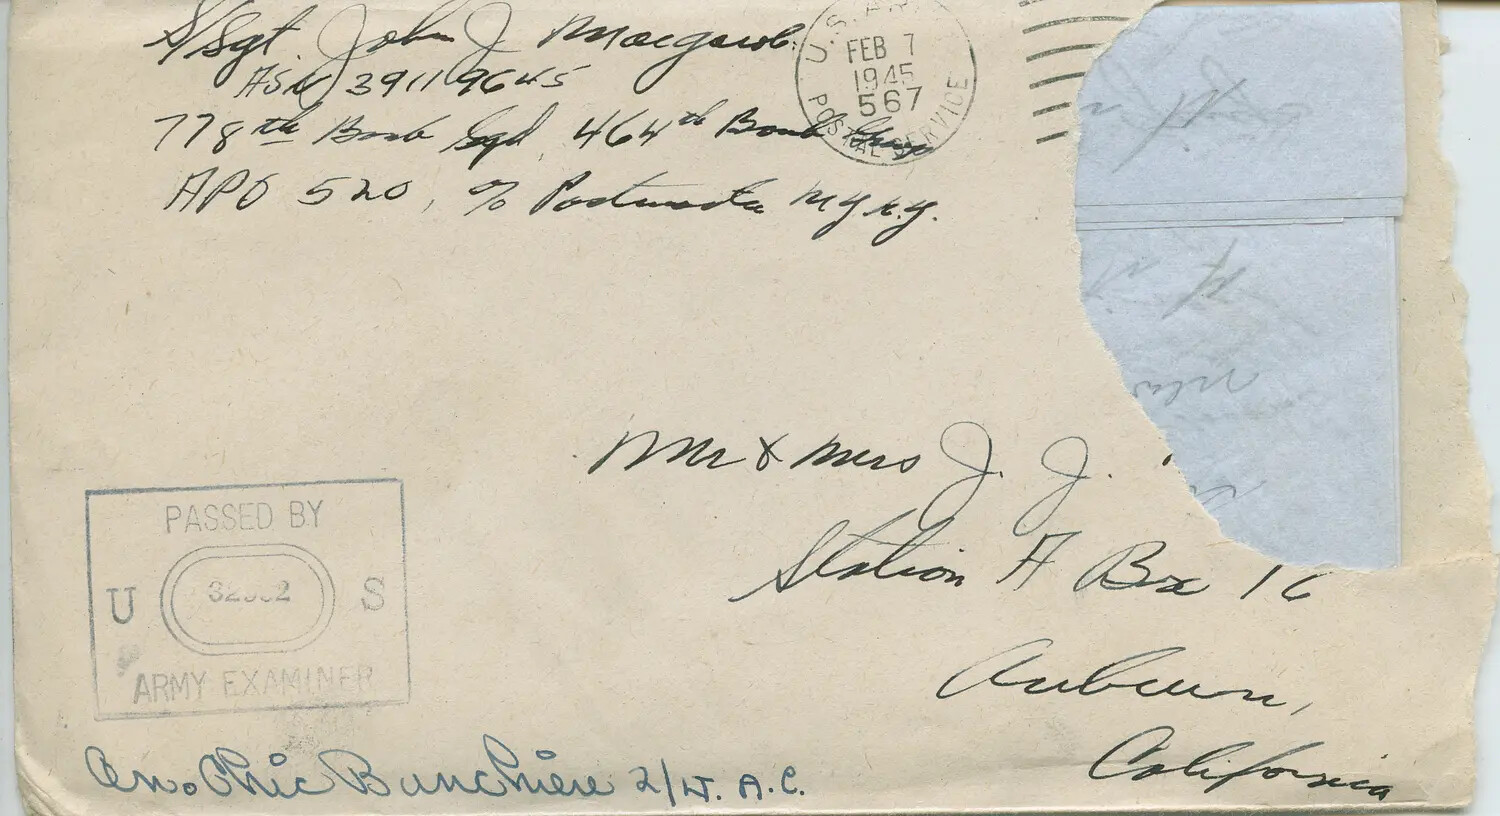 S/Sgt. John J
ASN 39119645
778th Bomb Sqd, 464th Bomb Group
APO 520, c/o Postmaster N.Y. N.Y.
U.S. ARMY
FEB 7
1945
567
POSTAL SERVICE
Mr & Mrs J. J.
Station A Box 16
Auburn,
California
PASSED BY
U S
ARMY EXAMINER
2/Lt. A.C.